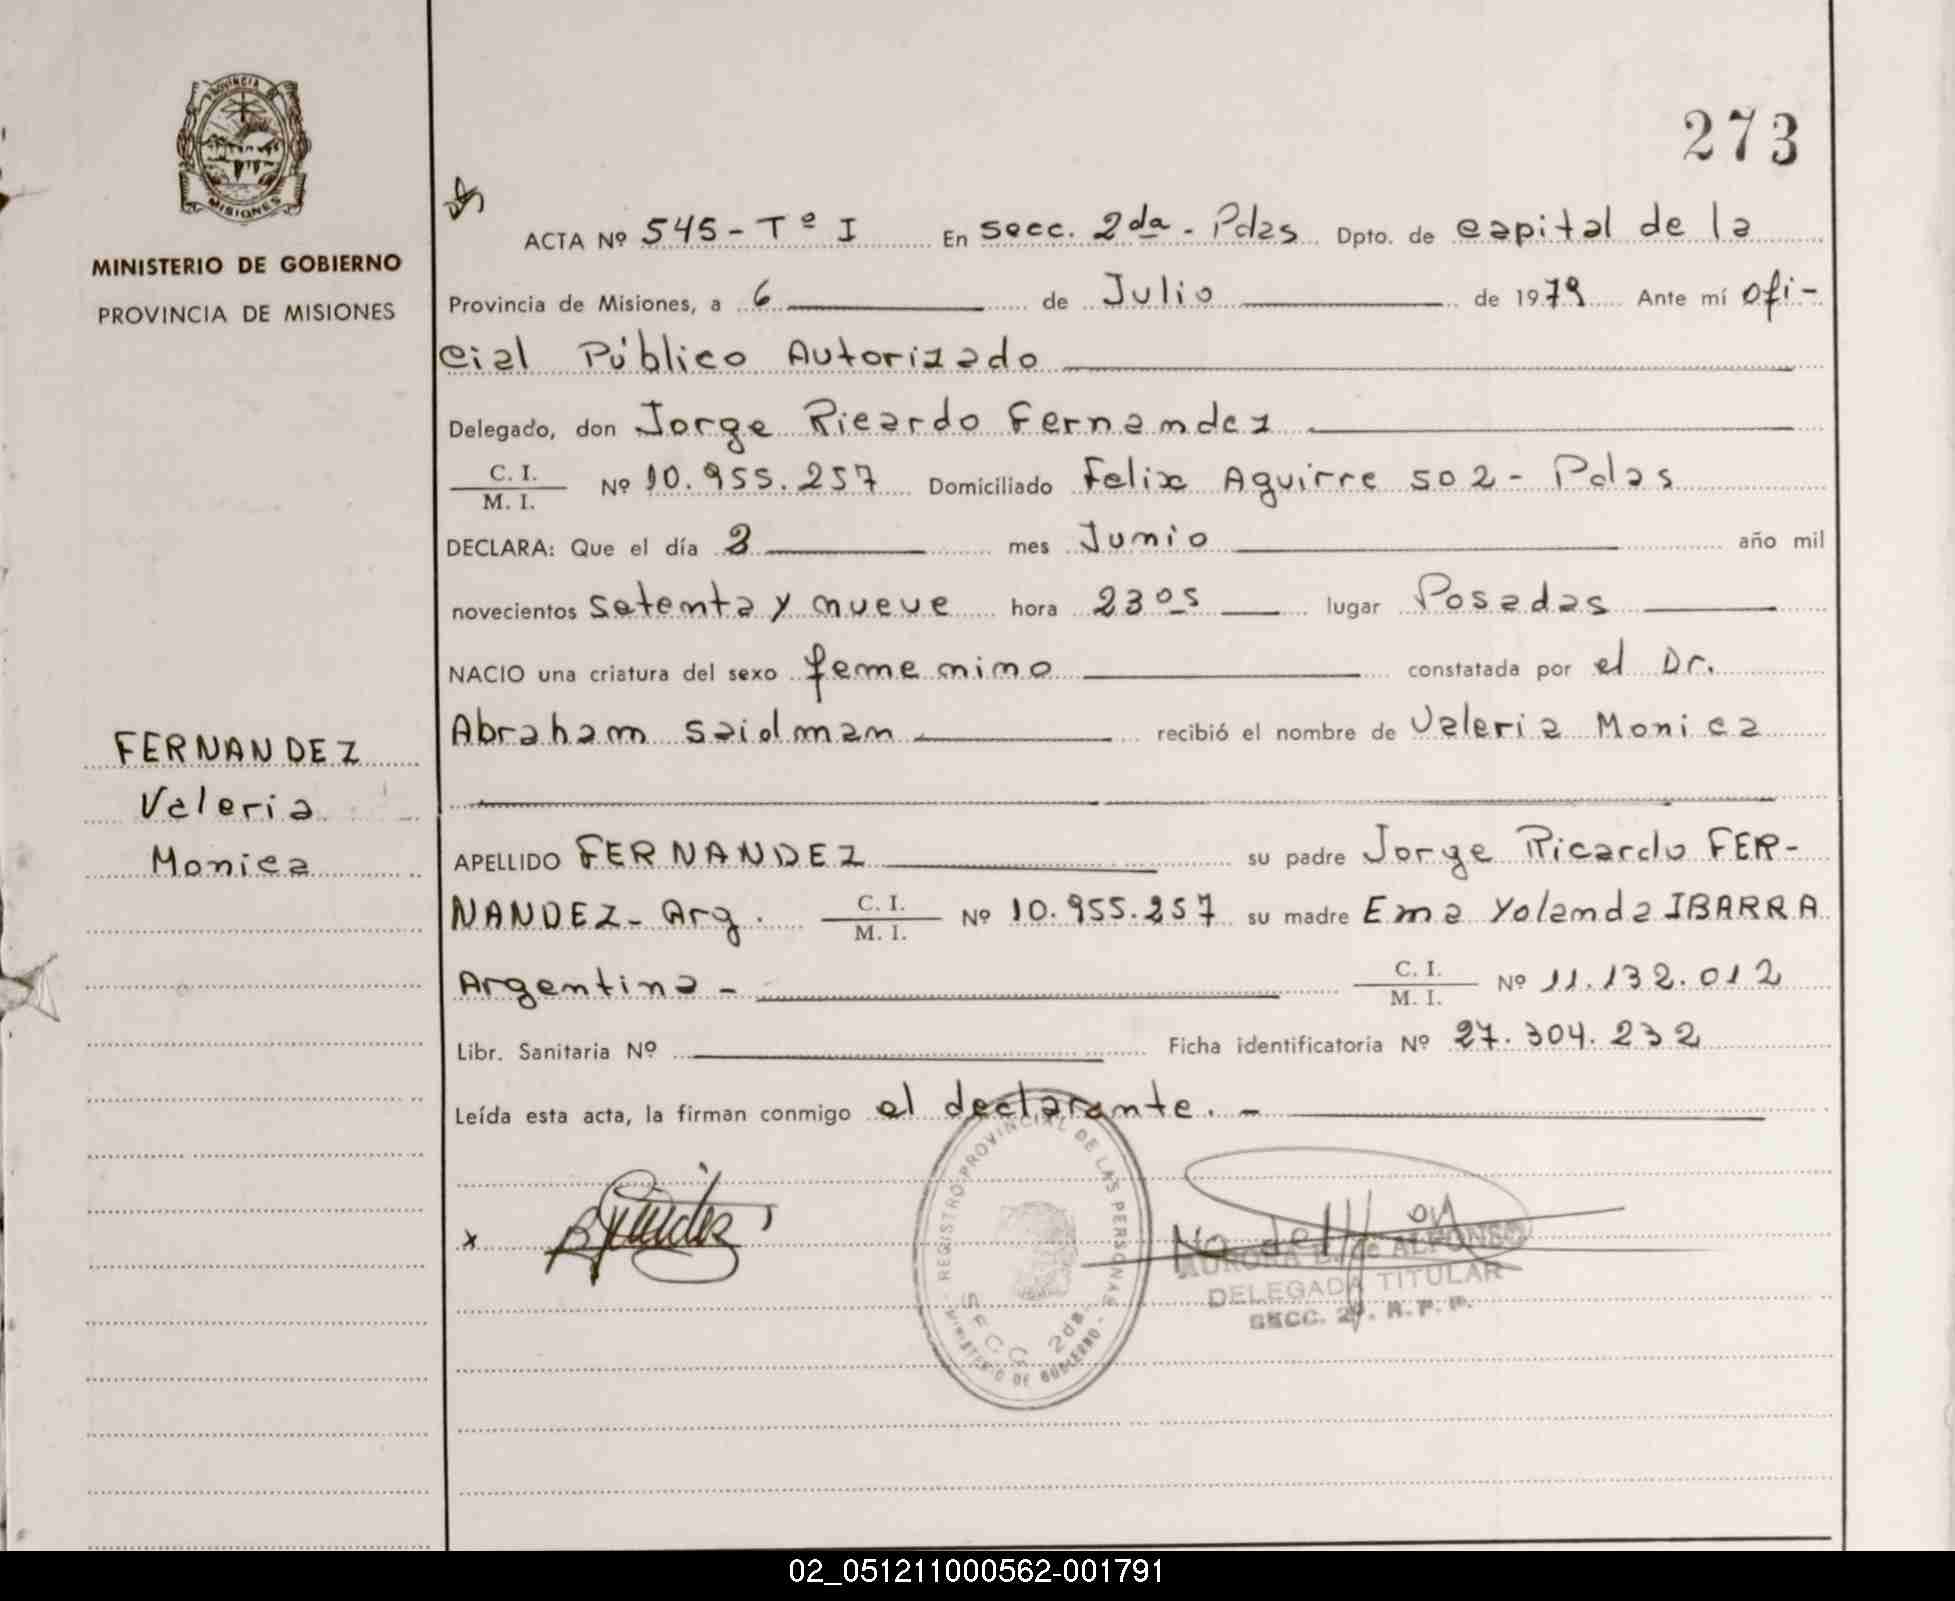 PROVINCIA DE
MISIONES
MINISTERIO DE GOBIERNO
PROVINCIA DE MISIONES
FERNANDEZ
Valeria
Monica
273
ACTA Nº 545 - Tº I En Secc. 2da - Pdas Dpto. de capital de la
Provincia de Misiones, a 6 de Julio de 1979 Ante mí ofi-
cial Público Autorizado
Delegado, don Jorge Ricardo Fernandez
C. I.
M. I. Nº 10.955.257 Domiciliado Felix Aguirre 502 - Pdas
DECLARA: Que el día 3 mes Junio año mil
novecientos setenta y nueve hora 23os lugar Posadas
NACIO una criatura del sexo femenino constatada por el Dr.
Abraham Saidman recibió el nombre de Valeria Monica
APELLIDO FERNANDEZ su padre Jorge Ricardo FER-
NANDEZ - Arg. C. I.
M. I. Nº 10.955.257 su madre Ema Yolanda IBARRA
Argentina - C. I.
M. I. Nº 11.132.012
Libr. Sanitaria Nº Ficha identificatoria Nº 27.304.232
Leída esta acta, la firman conmigo el declarante. -
REGISTRO PROVINCIAL DE LAS PERSONAS
SECC. 2da.
MINISTERIO DE GOBIERNO
x
AURORA E. de ALFONSO
DELEGADA TITULAR
SECC. 2ª. R. P. P.
02_051211000562-001791